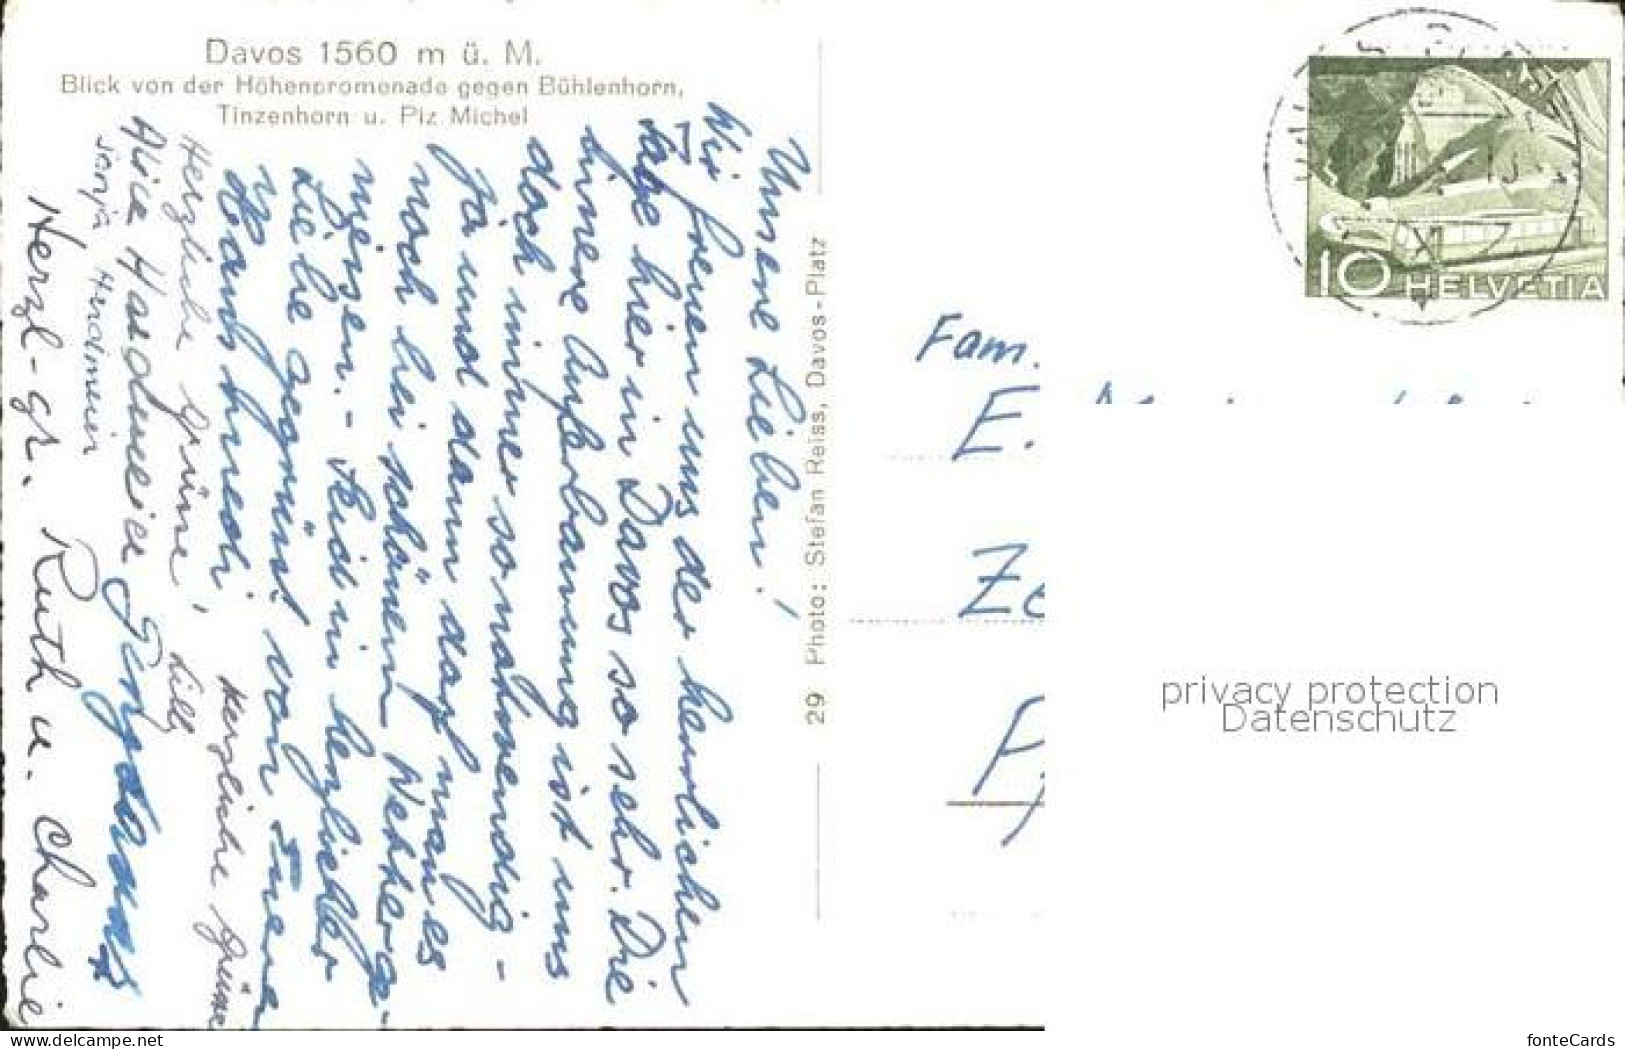 Davos 1560 m ü. M.
Blick von der Höhenpromenade gegen Bühlenhorn,
Tinzenhorn u. Piz Michel
Unsere Lieben!
Wir freuen uns der herrlichen
Tage hier in Davos so sehr. Die
innere Auferbauung ist uns
doch immer so notwendig –
Ja und dann darf man es
noch bei schönem Wetter ge-
niessen. – Seid in herzlicher
Liebe gegrüsst von Euren
Herzliche Grüsse, Lilly
Herzliche Grüsse
Alice
Sonja
Herzl. gr. Ruth u. Charlie
29 Photo: Stefan Reiss, Davos-Platz
10 HELVETIA
Fam.
E.
privacy protection
Datenschutz
www.delcampe.net
fonteCards